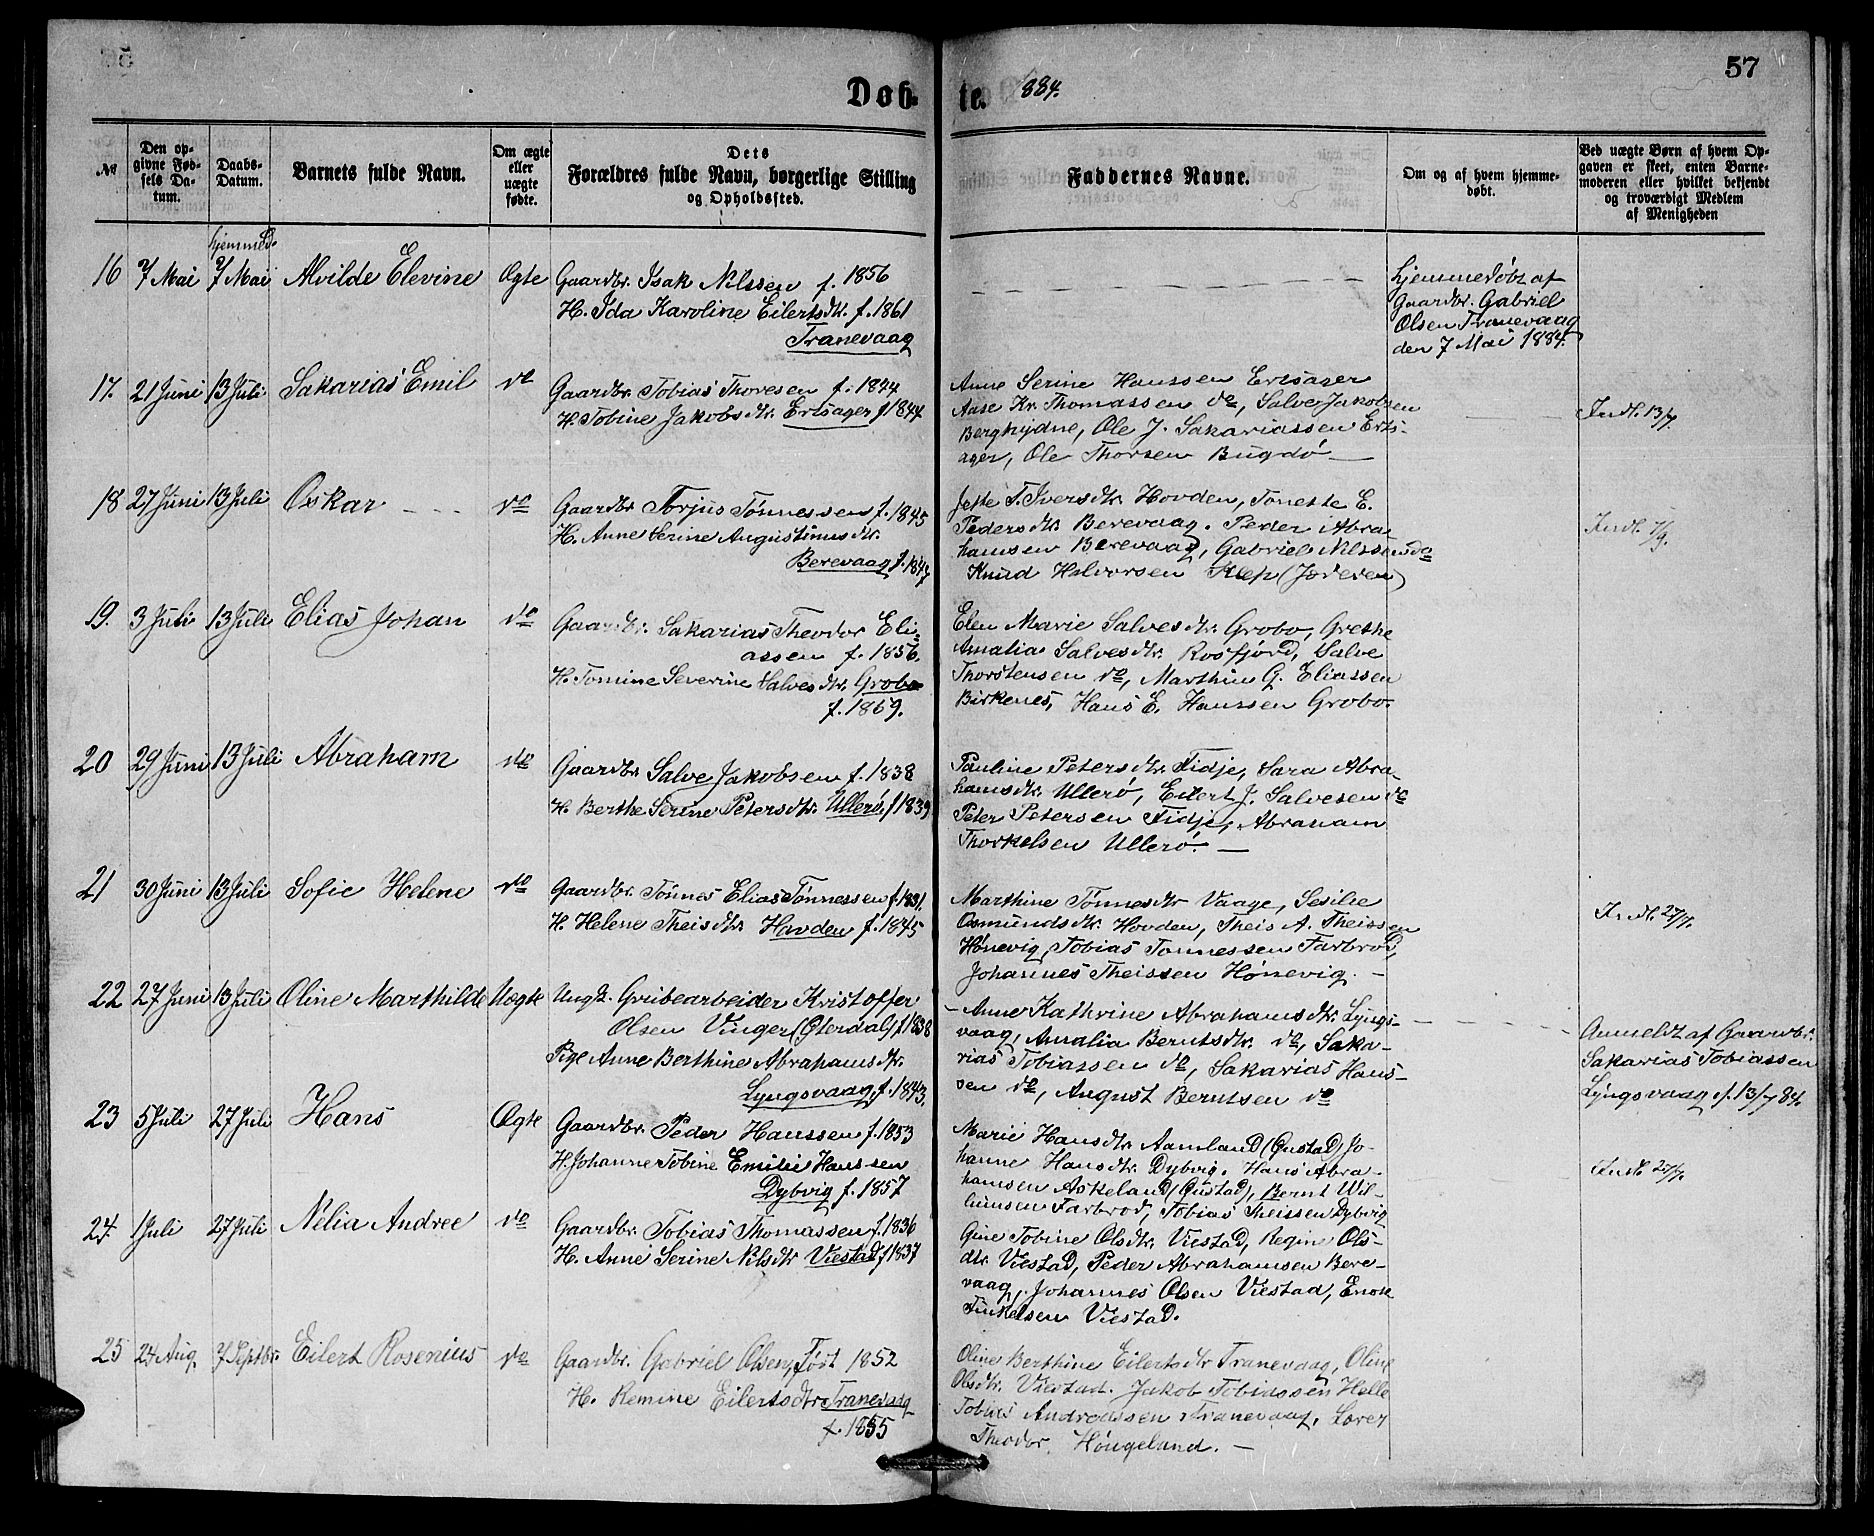 57
Døb-
te.
1884.
№
Den op-
givne Fød-
sels Da-
tum.
Daabs-
Datum.
Barnets fulde Navn.
Om ægte
eller
uægte
fødte.
Dets
Forældres fulde Navn, borgerlige Stilling
og Opholdssted.
Faddernes Navne.
Om og af hvem hjemme-
døbt.
Ved uægte Børn af hvem Op-
gaven er skeet, enten Barne-
moderen eller hvilket bekjendt
og troværdigt Medlem
af Menigheden
hjemmed.
16 7 Mai 7 Mai Alvilde Elevine Ægte
Gaardbr. Isak Nilssen f. 1856
H. Ida Karoline Eilertsdtr. f. 1861
Tranevaag
hjemmedøbt af
Gaardbr. Gabriel
Olsen Tranevaag
den 7 Mai 1884.
17. 21 Juni 13 Juli Sakarias Emil do
Gaardbr. Tobias Thoresen f. 1844
H. Tobine Jakobsdtr. Ertsager f 1844
Anne Serine Hanssen Ertsager
Aase Kr. Thomassen do, Salve Jakobsen
Berghydne, Ole J. Sakariassen Erts-
ager, Ole Thorsen Bugdø
Indl. 13/7
18 27 Juni 13 Juli Oskar do
Gaardbr Torjus Tønnessen f. 1845
H. Anne Serine Augustinusdtr.
Berevaag f. 1847
Jette T. Iversdtr. Hovden, Tonette E.
Pedersdtr. Berevaag. Peder Abra-
hamsen Berevaag, Gabriel Nilssen do
Knud Halvorsen
Indl. 7/9.
19. 3 Juli 13 Juli Elias Johan do
Gaardbr. Sakarias Theodor Eli-
assen f. 1856.
H. Tomine Severine Salvesdtr. Grobo
f. 1859.
Elen Marie Salvesdtr. Grobo, Grethe
Amalia Salvesdtr. Rosfjord, Salve
Thorstensen do, Marthin G. Eliassen
Birkenes, Hans E. Hanssen Grobo.
20 29 Juni 13 Juli Abraham do
Gaardbr. Salve Jakobsen f. 1838
H. Berthe Serine Petersdtr. Ullerø. f 1839
Pauline Petersdtr. Fidje, Sara Abra-
hamsdtr. Ullerø, Eilert J. Salvesen do
Peter Petersen Fidje, Abraham
Thorkelsen Ullerø.
21 30 Juni 13 Juli Sofie Helene do
Gaardbr. Tønnes Elias Tønnessen f. 1831
H. Helene Theisdtr. Hovden f. 1845
Marthine Tønnesdtr Vaage, Sesilie
Osmundsdtr. Hovden, Theis A. Theissen
Hønevig, Tobias Tønnessen Farbrod,
Johannes Theissen Hønevig.
Indl. 27/7.
22 27 Juni 13 Juli Oline Marthilde Uægte
Ungk. Grubearbeider Kristoffer
Olsen Vinger (Østerdal) f. 1838
Pige Anne Berthine Abrahamsdtr.
Lyngsvaag. f. 1843.
Anne Kathrine Abrahamsdtr. Lyngs-
vaag, Amalia Berntsdtr. do, Saka-
rias Tobiassen do, Sakarias Hans-
sen do, August Berntsen do
Anmeldt af Gaardbr.
Sakarias Tobiassen
Lyngsvaag d. 13/7 84.
23 5 Juli 27 Juli Hans Ægte
Gaardbr. Peder Hanssen f. 1853
H. Johanne Tobine Emilie Hanssen
Dybvig f. 1857
Marie Hansdtr. Aamland (Øustad) Jo-
hanne Hansdtr. Dybvig. Hans Abra-
hamsen Askeland (Øustad), Bernt Wil-
lumsen Farbrod, Tobias Theissen Dybvig
Indl. 27/7.
24. 1 Juli 27 Juli Nelia Andree do
Gaardbr. Tobias Thomassen f. 1836
H. Anne Serine Nilsdtr Viestad f 1837
Gine Tobine Olsdtr. Viestad, Regine Ols-
dtr. Viestad, Peder Abrahamsen Bere-
vaag, Johannes Olsen Viestad, Enok
Tinkelsen Viestad.
25 24 Aug. 7 Septbr. Eilert Rosenius do
Gaardbr. Gabriel Olsen, Født 1852
H. Remine Eilertsdtr Tranevaag
f. 1855
Oline Berthine Eilertsdtr Tranevaag, Oline
Olsdtr. Viestad. Jakob Tobiassen Helle
Tobias Andreassen Tranevaag, Lorez
Theodor Høugeland.